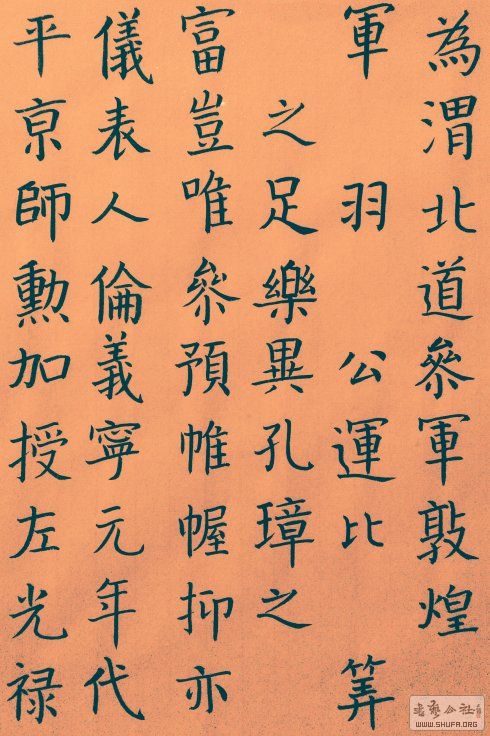 為渭北道叅軍敦煌
軍羽公運比筭
之足樂異孔璋之
富豈唯叅預帷幄抑亦
儀表人倫義寧元年代
平京師勳加授左光禄
WWW.SHUFA.ORG